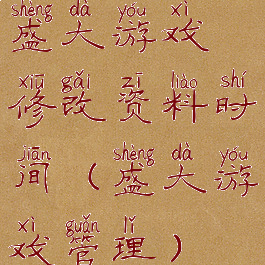 shèng dà yóu xì
盛大游戏
xiū gǎi zī liào shí
修改资料时
jiān shèng dà yóu
间（盛大游
xì guǎn lǐ
戏管理）